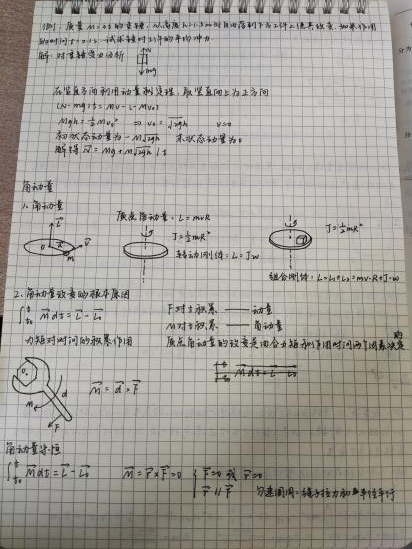 例1. 质量 M=3t 的重锤, 从高度 h=1.5m 处自由落到下方工件上使其变形, 如果作用
的时间 t=0.1s. 试求锤对工件的平均冲力.
解: 对重锤受力分析 N mg
在竖直方向利用动量定理, 取竖直向上为正方向
(N-mg)t = Mv-(-Mv₀)
Mgh=½Mv₀² ⇒ v₀=√2gh v=0
初状态动量为 -M√2gh 末状态动量为0
解得 N̄=Mg+M√2gh/t
角动量
1. 角动量
质点角动量: L=mvR
J=½mR²
转动刚体: L=Jω
J=½mR²
组合刚体: L=L₁+L₂=mv·R+J·ω
2. 角动量改变的根本原因
∫ M dt = L - L₀
F对t积累 —— 动量
M对t积累 —— 角动量
力矩对时间的积累作用
质点角动量的改变是由合力矩和作用时间两个因素决定的
M dt = L L₀
M = d × F
角动量守恒
∫ M dt = L - L₀
M = r × F = 0
F=0 或 r=0
r // F
匀速圆周: